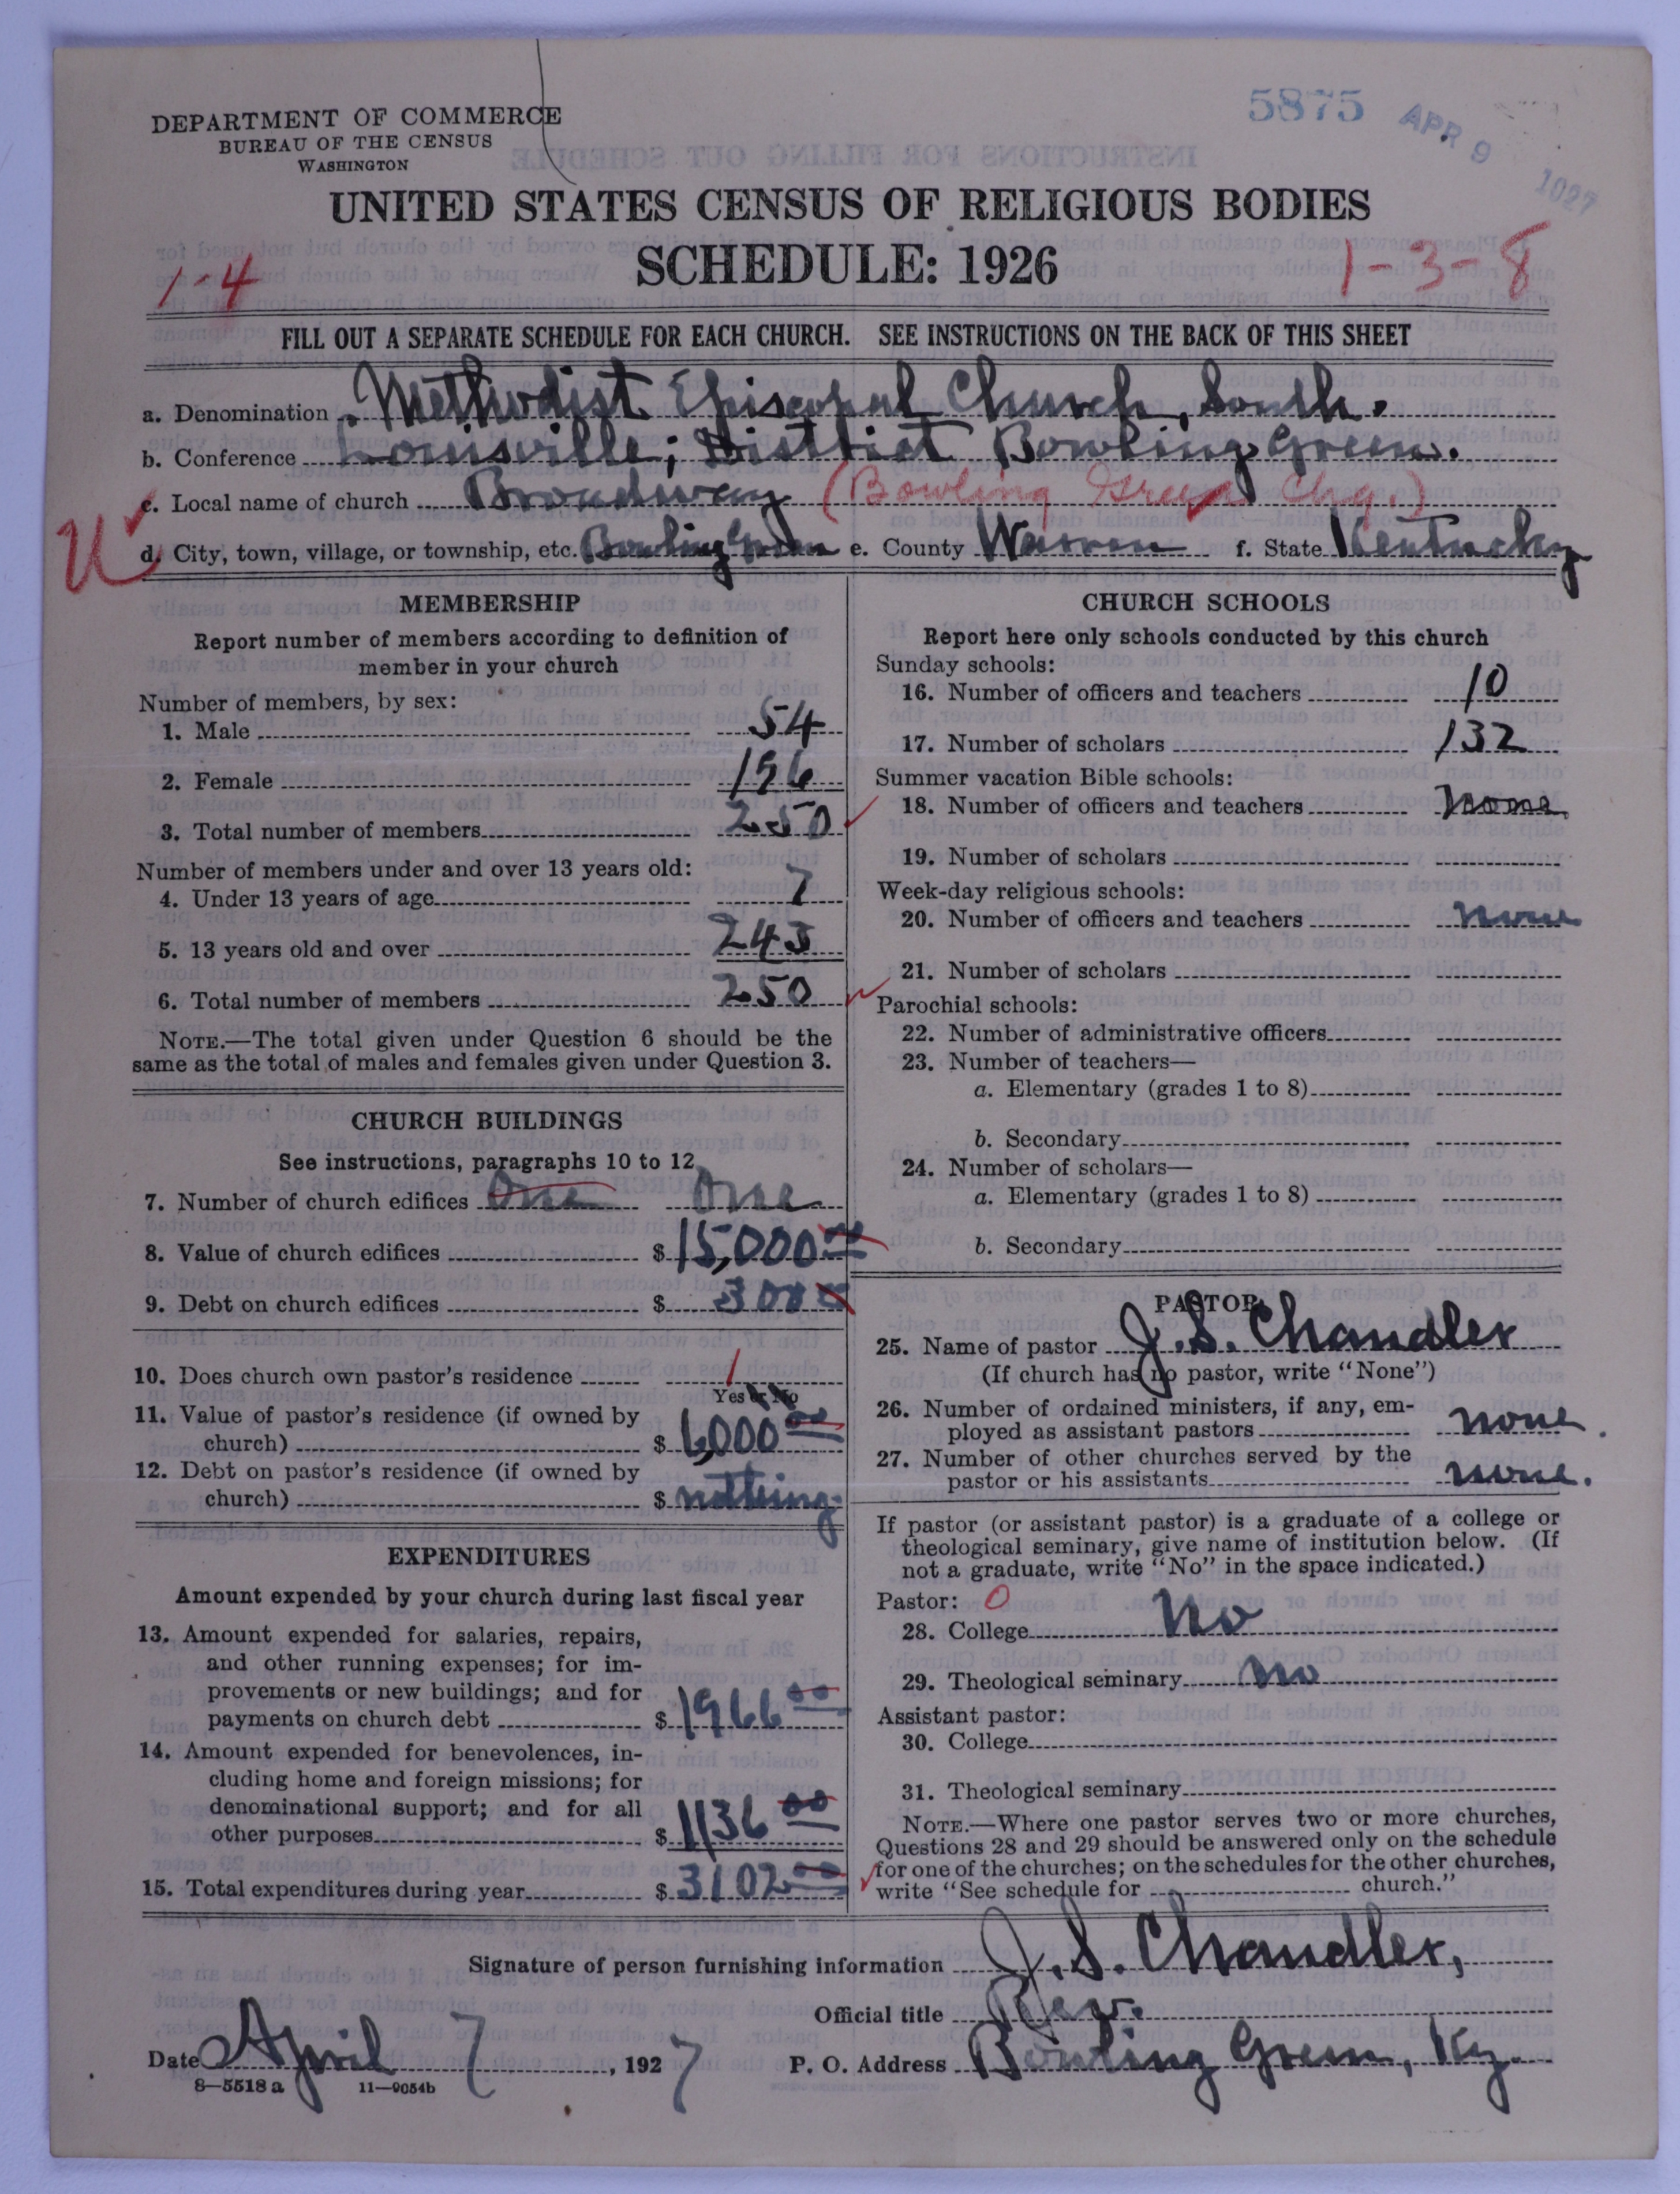 5875 APR 9 1927
DEPARTMENT OF COMMERCE
BUREAU OF THE CENSUS
WASHINGTON
UNITED STATES CENSUS OF RELIGIOUS BODIES
SCHEDULE: 1926
1-4
1-3-8
FILL OUT A SEPARATE SCHEDULE FOR EACH CHURCH. SEE INSTRUCTIONS ON THE BACK OF THIS SHEET
a. Denomination Methodist Episcopal Church, South.
b. Conference Louisville; District Bowling Green.
c. Local name of church Broadway (Bowling Green Chg.)
d. City, town, village, or township, etc. Bowling Green e. County Warren f. State Kentucky
MEMBERSHIP
Report number of members according to definition of
member in your church
Number of members, by sex:
1. Male 54
2. Female 196
3. Total number of members 250
Number of members under and over 13 years old:
4. Under 13 years of age 7
5. 13 years old and over 243
6. Total number of members 250
NOTE.—The total given under Question 6 should be the
same as the total of males and females given under Question 3.
CHURCH BUILDINGS
See instructions, paragraphs 10 to 12
7. Number of church edifices One One
8. Value of church edifices $ 15,000 00
9. Debt on church edifices $ 300
10. Does church own pastor's residence 1
Yes or No
11. Value of pastor's residence (if owned by
church) $ 6,000 00
12. Debt on pastor's residence (if owned by
church) $ nothing.
EXPENDITURES
Amount expended by your church during last fiscal year
13. Amount expended for salaries, repairs,
and other running expenses; for im-
provements or new buildings; and for
payments on church debt $ 1966 00
14. Amount expended for benevolences, in-
cluding home and foreign missions; for
denominational support; and for all
other purposes $ 1136 00
15. Total expenditures during year $ 3102 00
CHURCH SCHOOLS
Report here only schools conducted by this church
Sunday schools:
16. Number of officers and teachers 10
17. Number of scholars 132
Summer vacation Bible schools:
18. Number of officers and teachers none.
19. Number of scholars
Week-day religious schools:
20. Number of officers and teachers none
21. Number of scholars
Parochial schools:
22. Number of administrative officers
23. Number of teachers—
a. Elementary (grades 1 to 8)
b. Secondary
24. Number of scholars—
a. Elementary (grades 1 to 8)
b. Secondary
PASTOR
25. Name of pastor J. S. Chandler
(If church has no pastor, write "None")
26. Number of ordained ministers, if any, em-
ployed as assistant pastors none.
27. Number of other churches served by the
pastor or his assistants none.
If pastor (or assistant pastor) is a graduate of a college or
theological seminary, give name of institution below. (If
not a graduate, write "No" in the space indicated.)
Pastor: 0
28. College No
29. Theological seminary No
Assistant pastor:
30. College
31. Theological seminary
NOTE.—Where one pastor serves two or more churches,
Questions 28 and 29 should be answered only on the schedule
for one of the churches; on the schedules for the other churches,
write "See schedule for church."
Signature of person furnishing information J. S. Chandler,
Official title Rev.
Date April 7, 1927 P. O. Address Bowling Green, Ky.
8—5518 a 11—9054b